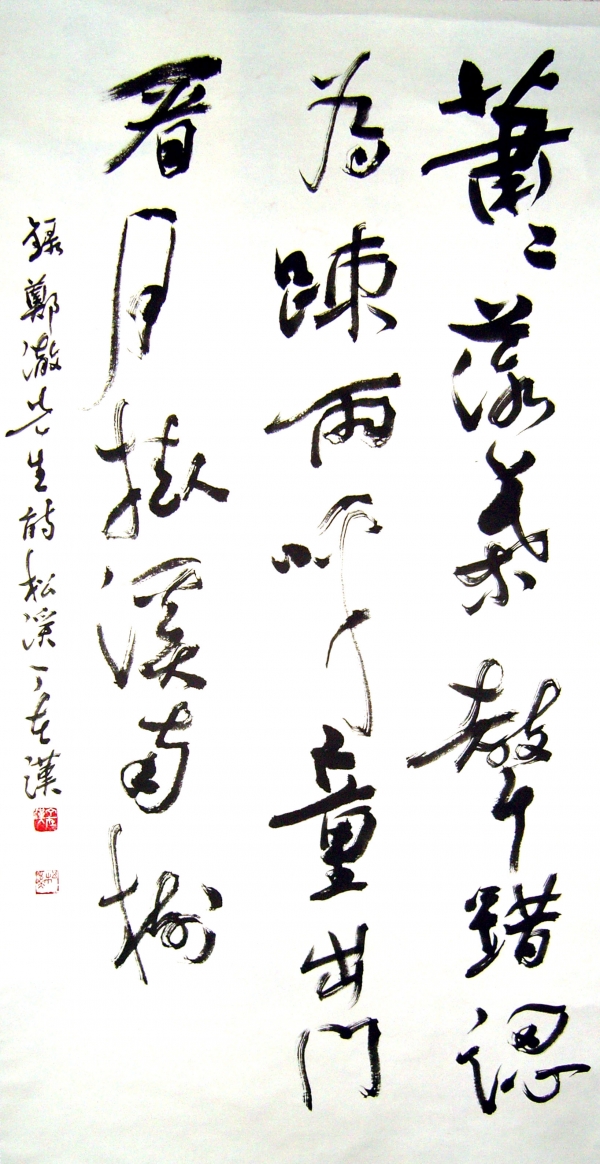 蕭々落葉聲錯認
為踈雨呼童出門
看月掛溪南樹
錄鄭澈先生詩松溪丁在漢